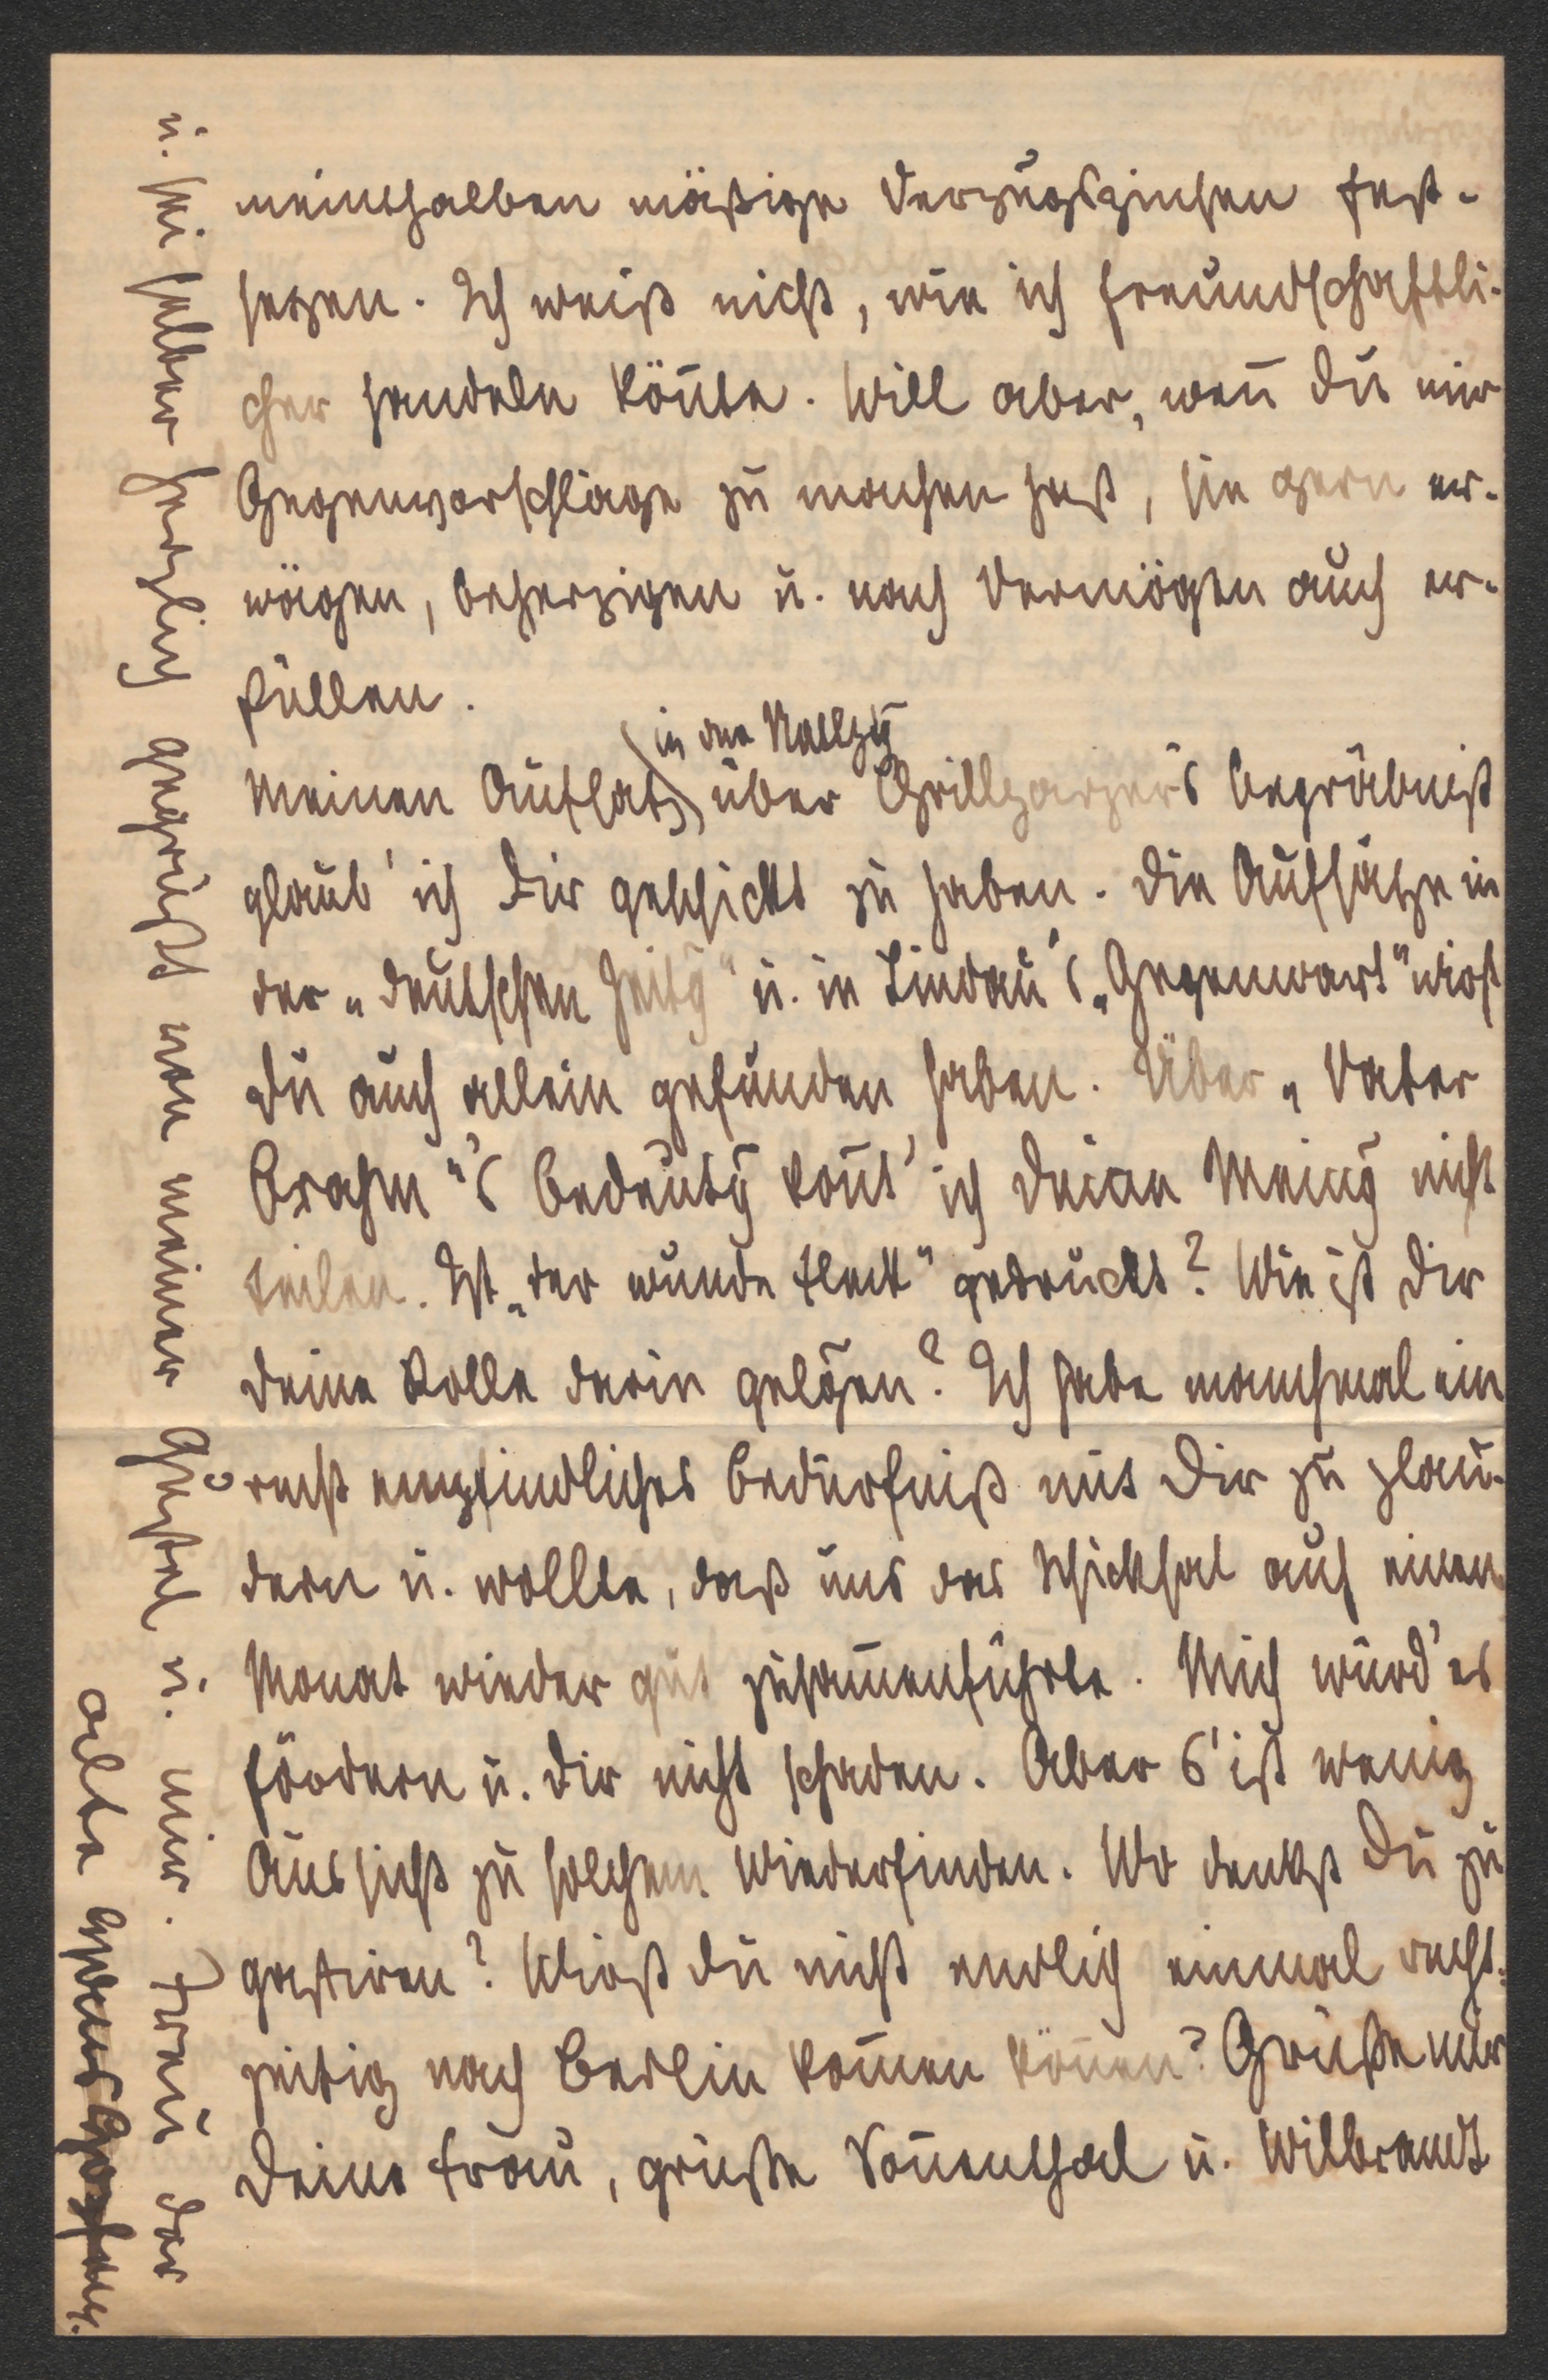 meinthalben mäßige Verzugszinsen fest-
setzen. Ich weiß nicht, wie ich freundschaftli-
cher handeln kön̄te. Will aber, wen̄ Du mir
Gegenvorschläge zu machen hast, sie gern er-
wägen, beherzigen u. nach Vermögen auch er-
füllen.
in der Natlztg
Meinen Aufsatz über Grillparzer's Begräbniß
glaub' ich Dir geschickt zu haben. Die Aufsätze in
der „Deutschen Zeitg" u. in Lindau's „Gegenwart" wirst
Du auch allein gefunden haben. Über „Vater
Brahm"'s Bedeutg kon̄t' ich Deine Meing nicht
teilen. Ist „der wunde Fleck" gedruckt? Wie ist Dir
Deine Rolle darin gelegen? Ich habe manchmal ein
recht empfindliches Bedürfniß mit Dir zu plau-
dern u. wollte, daß uns das Schicksal auf einen
Monat wieder gut zusam̄enführte. Mich würd' es
fördern u. Dir nicht schaden. Aber s'ist wenig
Aussicht zu solchem Wiederfinden. Wo denkst Du zu
gastiren? Wirst Du nicht endlich einmal recht-
zeitig nach Berlin kom̄en kön̄en? Grüße mir
Deine Frau, grüße Son̄enthal u. Wilbrandt
u. sei selber herzlich gegrüßt von meiner Gustel u. mir. Treu der
alte